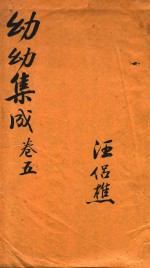 幼幼集成卷五
汪侣樵